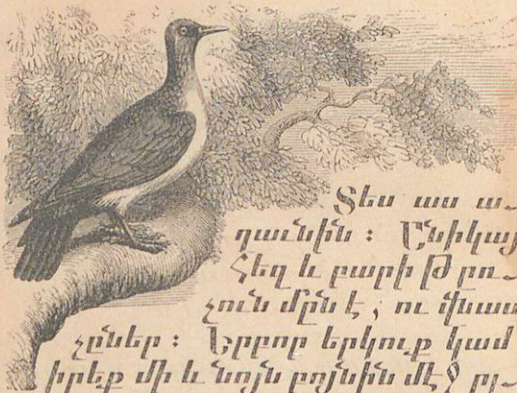 Տես աս ա-
ղաւնին ։ Անիկայ
հեզ և բարի թռ-
չուն մըն է , ու վնաս
չըներ ։ Երբոր երկուք կամ
իրեք մի և նոյն բոյնին մէջ ըլ-